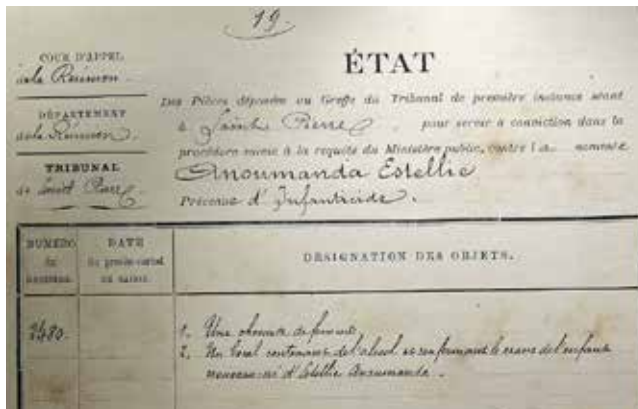 19.
COUR D'APPEL
de la Réunion
DÉPARTEMENT
de la Réunion.
TRIBUNAL
de Saint Pierre
ÉTAT
Des Pièces déposées au Greffe du Tribunal de première instance séant
à Saint Pierre, pour servir à conviction dans la
procédure suivie à la requête du Ministère public, contre la nommée
Anoumanda Estellie
Prévenue d'Infanticide.
NUMÉRO
du
REGISTRE.
DATE
du procès-verbal
DE SAISIE.
DÉSIGNATION DES OBJETS.
2480.
1. Une chemise de femme
2. Un bocal contenant de l'alcool et renfermant le crâne de l'enfant
nouveau-né d'Estellie Anoumanda.